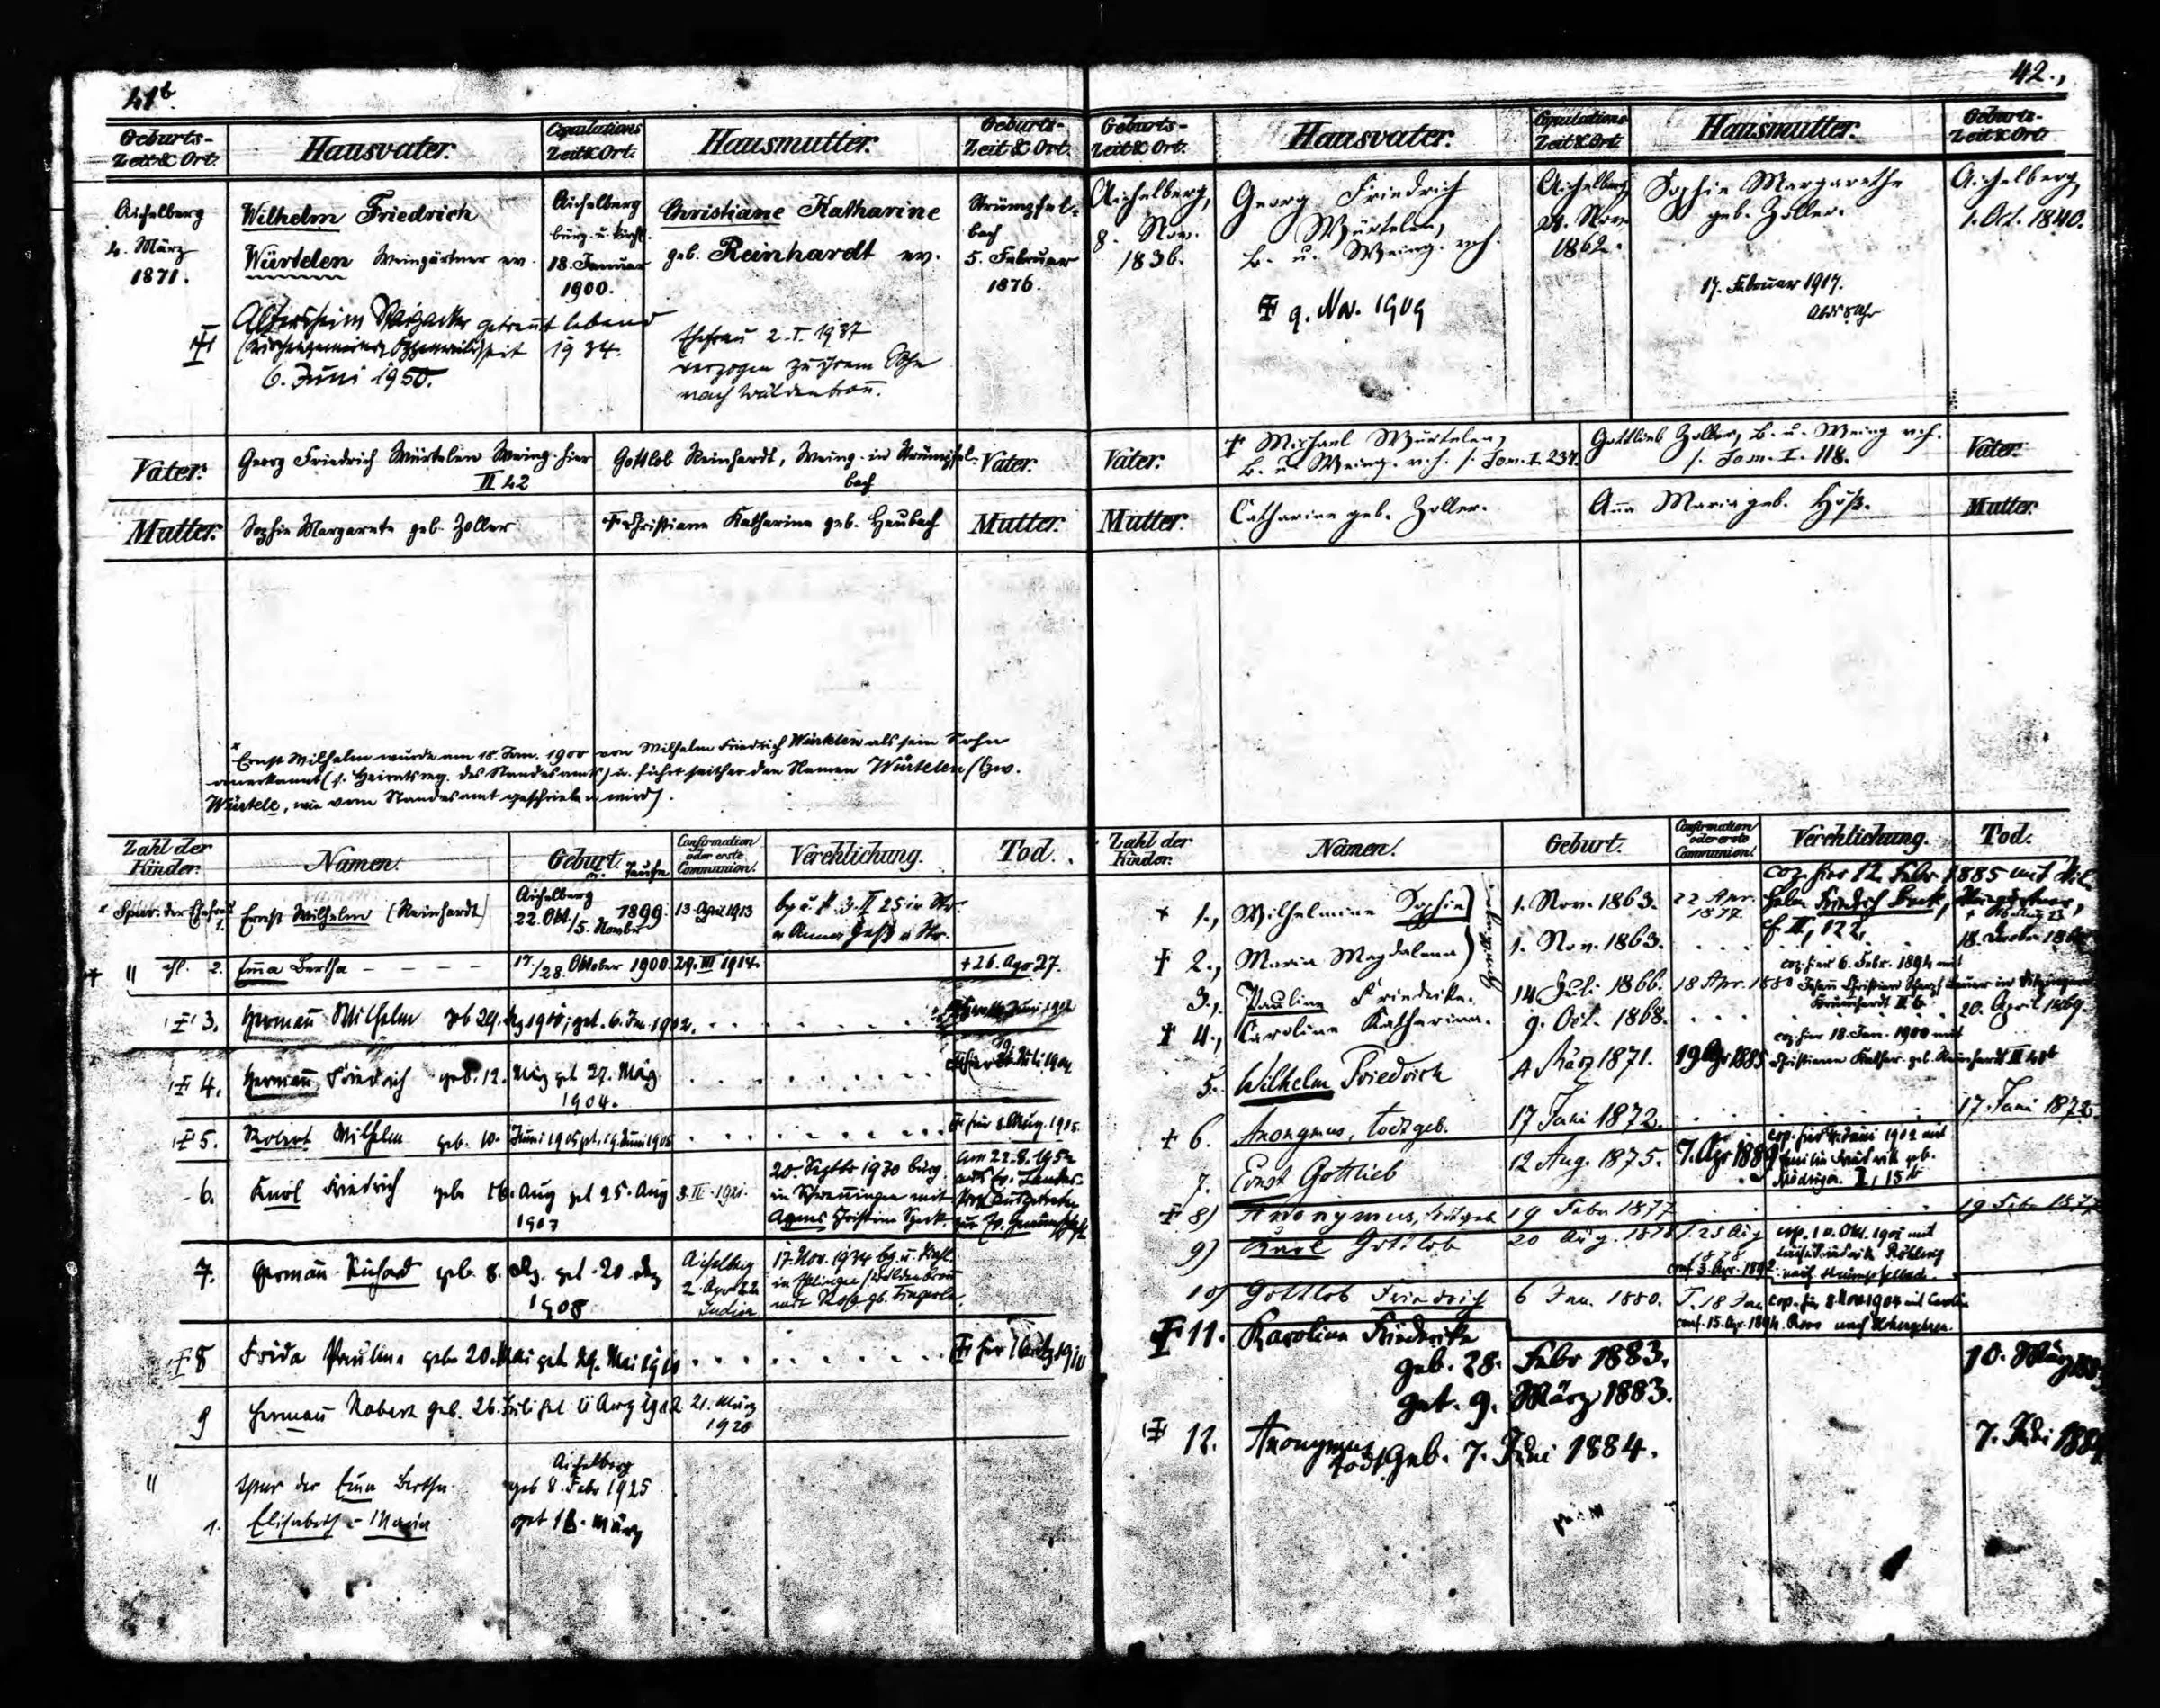 41b.
Geburts-
Zeit & Ort.
Hausvater.
Copulations
Zeit & Ort.
Hausmutter.
Geburts-
Zeit & Ort.
Aichelberg
4. März
1871.
Wilhelm Friedrich
Würtelen Weingärtner ev.
Altersheim getrennt lebend
seit 1934.
6. Juni 1950.
Aichelberg
bürg. u. kirchl.
18. Januar
1900.
Christiane Katharine
geb. Reinhardt ev.
Ehefrau 2. I. 1937
verzogen zu ihrem Sohn
nach Wäldenbronn.
Strümpfel-
bach
5. Februar
1876.
Vater:
Georg Friedrich Würtelen Weing. hier
II 42
Gottlob Reinhardt, Weing. in Strümpfel-
bach
Vater:
Mutter:
Sophie Margarete geb. Zoller
† Christiane Katharine geb. Heubach
Mutter:
x Ernst Wilhelm wurde am 18. Jan. 1900 von Wilhelm Friedrich Würtelen als sein Sohn
anerkannt (s. Heiratsreg. des Standesamts) u. führt seither den Namen Würtelen (bzw.
Würtele, wie vom Standesamt geschrieben wird).
Zahl der
Kinder.
Namen.
Geburt.
u. Taufe
Confirmation
oder erste
Communion.
Verehlichung.
Tod.
x Spur. der Ehefrau
1.
Ernst Wilhelm (Reinhardt)
Aichelberg
22. Okt./5. Novbr 1899.
13 April 1913
bg u. k. 3. II 25 in Str.
2.
Emma Bertha
17./28. Oktober 1900.
29. III 1914.
† 26. Ago 27.
3.
Hermann Wilhelm geb 29. get. 6. Jan. 1902.
4.
Hermann Friedrich geb. 12. März get 27. März
1904.
5.
Robert Wilhelm geb. 10. Juni 1905 get. 19. Juni 1905
† hier 8. Aug. 1905
6.
Karl Friedrich geb. 16. Aug get 25. Aug
1907
3. IV. 1921.
20. Septbr 1930 bürg.
in Schwenningen mit
Agnes Christine
am 22.8.1952
aus ev. Landes-
7.
Hermann Richard geb. 8. Dez. get. 20. Dez
1908
Aichelberg
2. Apr 22
17. Nov. 1934 bg. u. kirchl.
in Esslingen/Wäldenbronn
8
Frida Pauline geb. 20. Mai get. 29. Mai 1910
9
Hermann Robert geb. 26. Juli get 11 Aug 1912
21. März
1926
Spur der Emma Bertha
1.
Elisabeth Maria
Aichelberg
geb 8. Febr 1925
get 18. März
42.,
Geburts-
Zeit & Ort.
Hausvater.
Copulations
Zeit & Ort.
Hausmutter.
Geburts-
Zeit & Ort.
Aichelberg,
8. Nov.
1836.
Georg Friedrich
Würtelen,
B. u. Weing. v. h.
† 9. Nov. 1909
Aichelberg
24. Nov.
1862.
Sophie Margarethe
geb. Zoller.
17. Februar 1917.
Aichelberg,
1. Oct. 1840.
Vater:
† Michael Würtelen,
B. u. Weing. v. h. s. Tom. I. 237.
Gottlieb Zoller, B. u. Weing v. h.
s. Tom. I. 118.
Vater:
Mutter:
Catharine geb. Zoller.
Anna Maria geb. Höß.
Mutter:
Zahl der
Kinder.
Namen.
Geburt.
Confirmation
oder erste
Communion.
Verehlichung.
Tod.
† 1., Wilhelmine Sophie
1. Nov. 1863.
22 Apr.
1877
cop. hier 12. Febr 1885 mit Wil-
helm Friedrich
f. II, 122.
† 2., Maria Magdalena
Zwillinge
1. Nov. 1863.
3., Pauline Friederike.
14. Juli 1866.
18 Apr. 1880
cop. hier 6. Febr. 1894 mit
Johann Christian
† 4., Caroline Katharina.
9. Oct. 1868.
20. April 1869.
5. Wilhelm Friedrich
4 März 1871.
19 Apr 1885
cop. hier 18. Jan. 1900 mit
Christiane Kathar. geb. Reinhardt II 41b
† 6. Anonymus, todtgeb.
17 Juni 1872.
17. Juni 1872.
7. Ernst Gottlieb
12 Aug. 1875.
7. Apr 1889
cop. hier Juni 1902 mit
† 8) Anonymus, todtgeb
19 Febr 1877
19 Febr 1877
9) Karl Gottlob
20 Aug. 1878
T. 25 Aug
1878
conf 3. Apr. 1892
cop. 10. Okt. 1901 mit
nach Strümpfelbach.
10) Gottlob Friedrich
6 Jan. 1880.
T. 18 Jan
conf. 15. Apr. 1894.
cop. hier 8. Nov 1904 mit
nach Hohengehren.
† 11. Karoline Friederike
geb. 28. Febr 1883.
get. 9. März 1883.
10. März
† 12. Anonymus
todtgeb. 7. Juni 1884.
7. Juni 1884